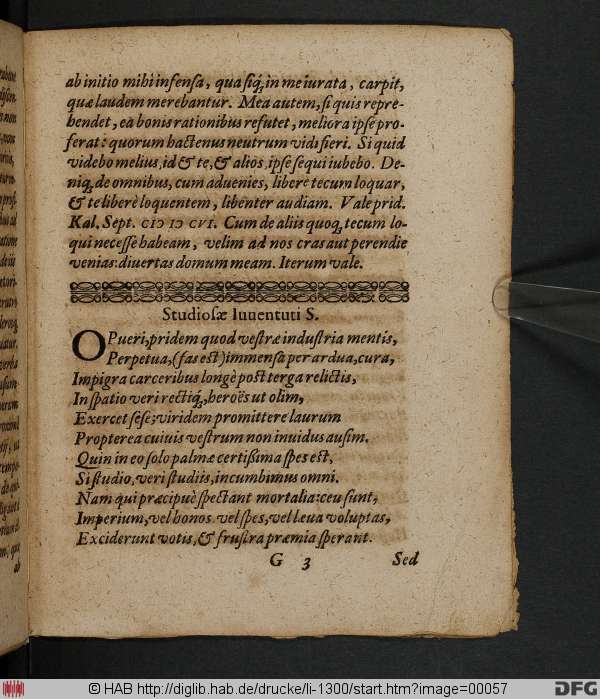 ab initio mihi infensa, qua siq́; in me iurata, carpit,
quæ laudem merebantur. Mea autem, si quis repre-
hendet, ea bonis rationibus refutet, meliora ipse pro-
ferat: quorum hactenus neutrum vidi fieri. Si quid
videbo melius, id & te, & alios, ipse sequi iubebo. De-
niq́; de omnibus, cum aduenies, liberè tecum loquar,
& te liberè loquentem, libenter audiam. Vale prid.
Kal. Sept. CIↃ IↃ CVI. Cum de aliis quoq́; tecum lo-
qui necesse habeam, velim ad nos cras aut perendie
venias: diuertas domum meam. Iterum vale.
Studiosæ Iuuentuti S.
O Pueri, pridem quod vestræ industria mentis,
Perpetua, (fas est) immensa per ardua, cura,
Impigra carceribus longè post terga relictis,
In spatio veri rectiq́;, heroës ut olim,
Exercet sese; viridem promittere laurum
Propterea cuiuis vestrum non inuidus ausim.
Quin in eo solo palmæ certißima spes est,
Si studio, veri studiis, incumbimus omni.
Nam qui præcipuè spectant mortalia: ceu sunt,
Imperium, vel honos, vel spes, vel læua voluptas,
Exciderunt votis, & frustra præmia sperant.
G 3 Sed
© HAB http://diglib.hab.de/drucke/li-1300/start.htm?image=00057
DFG